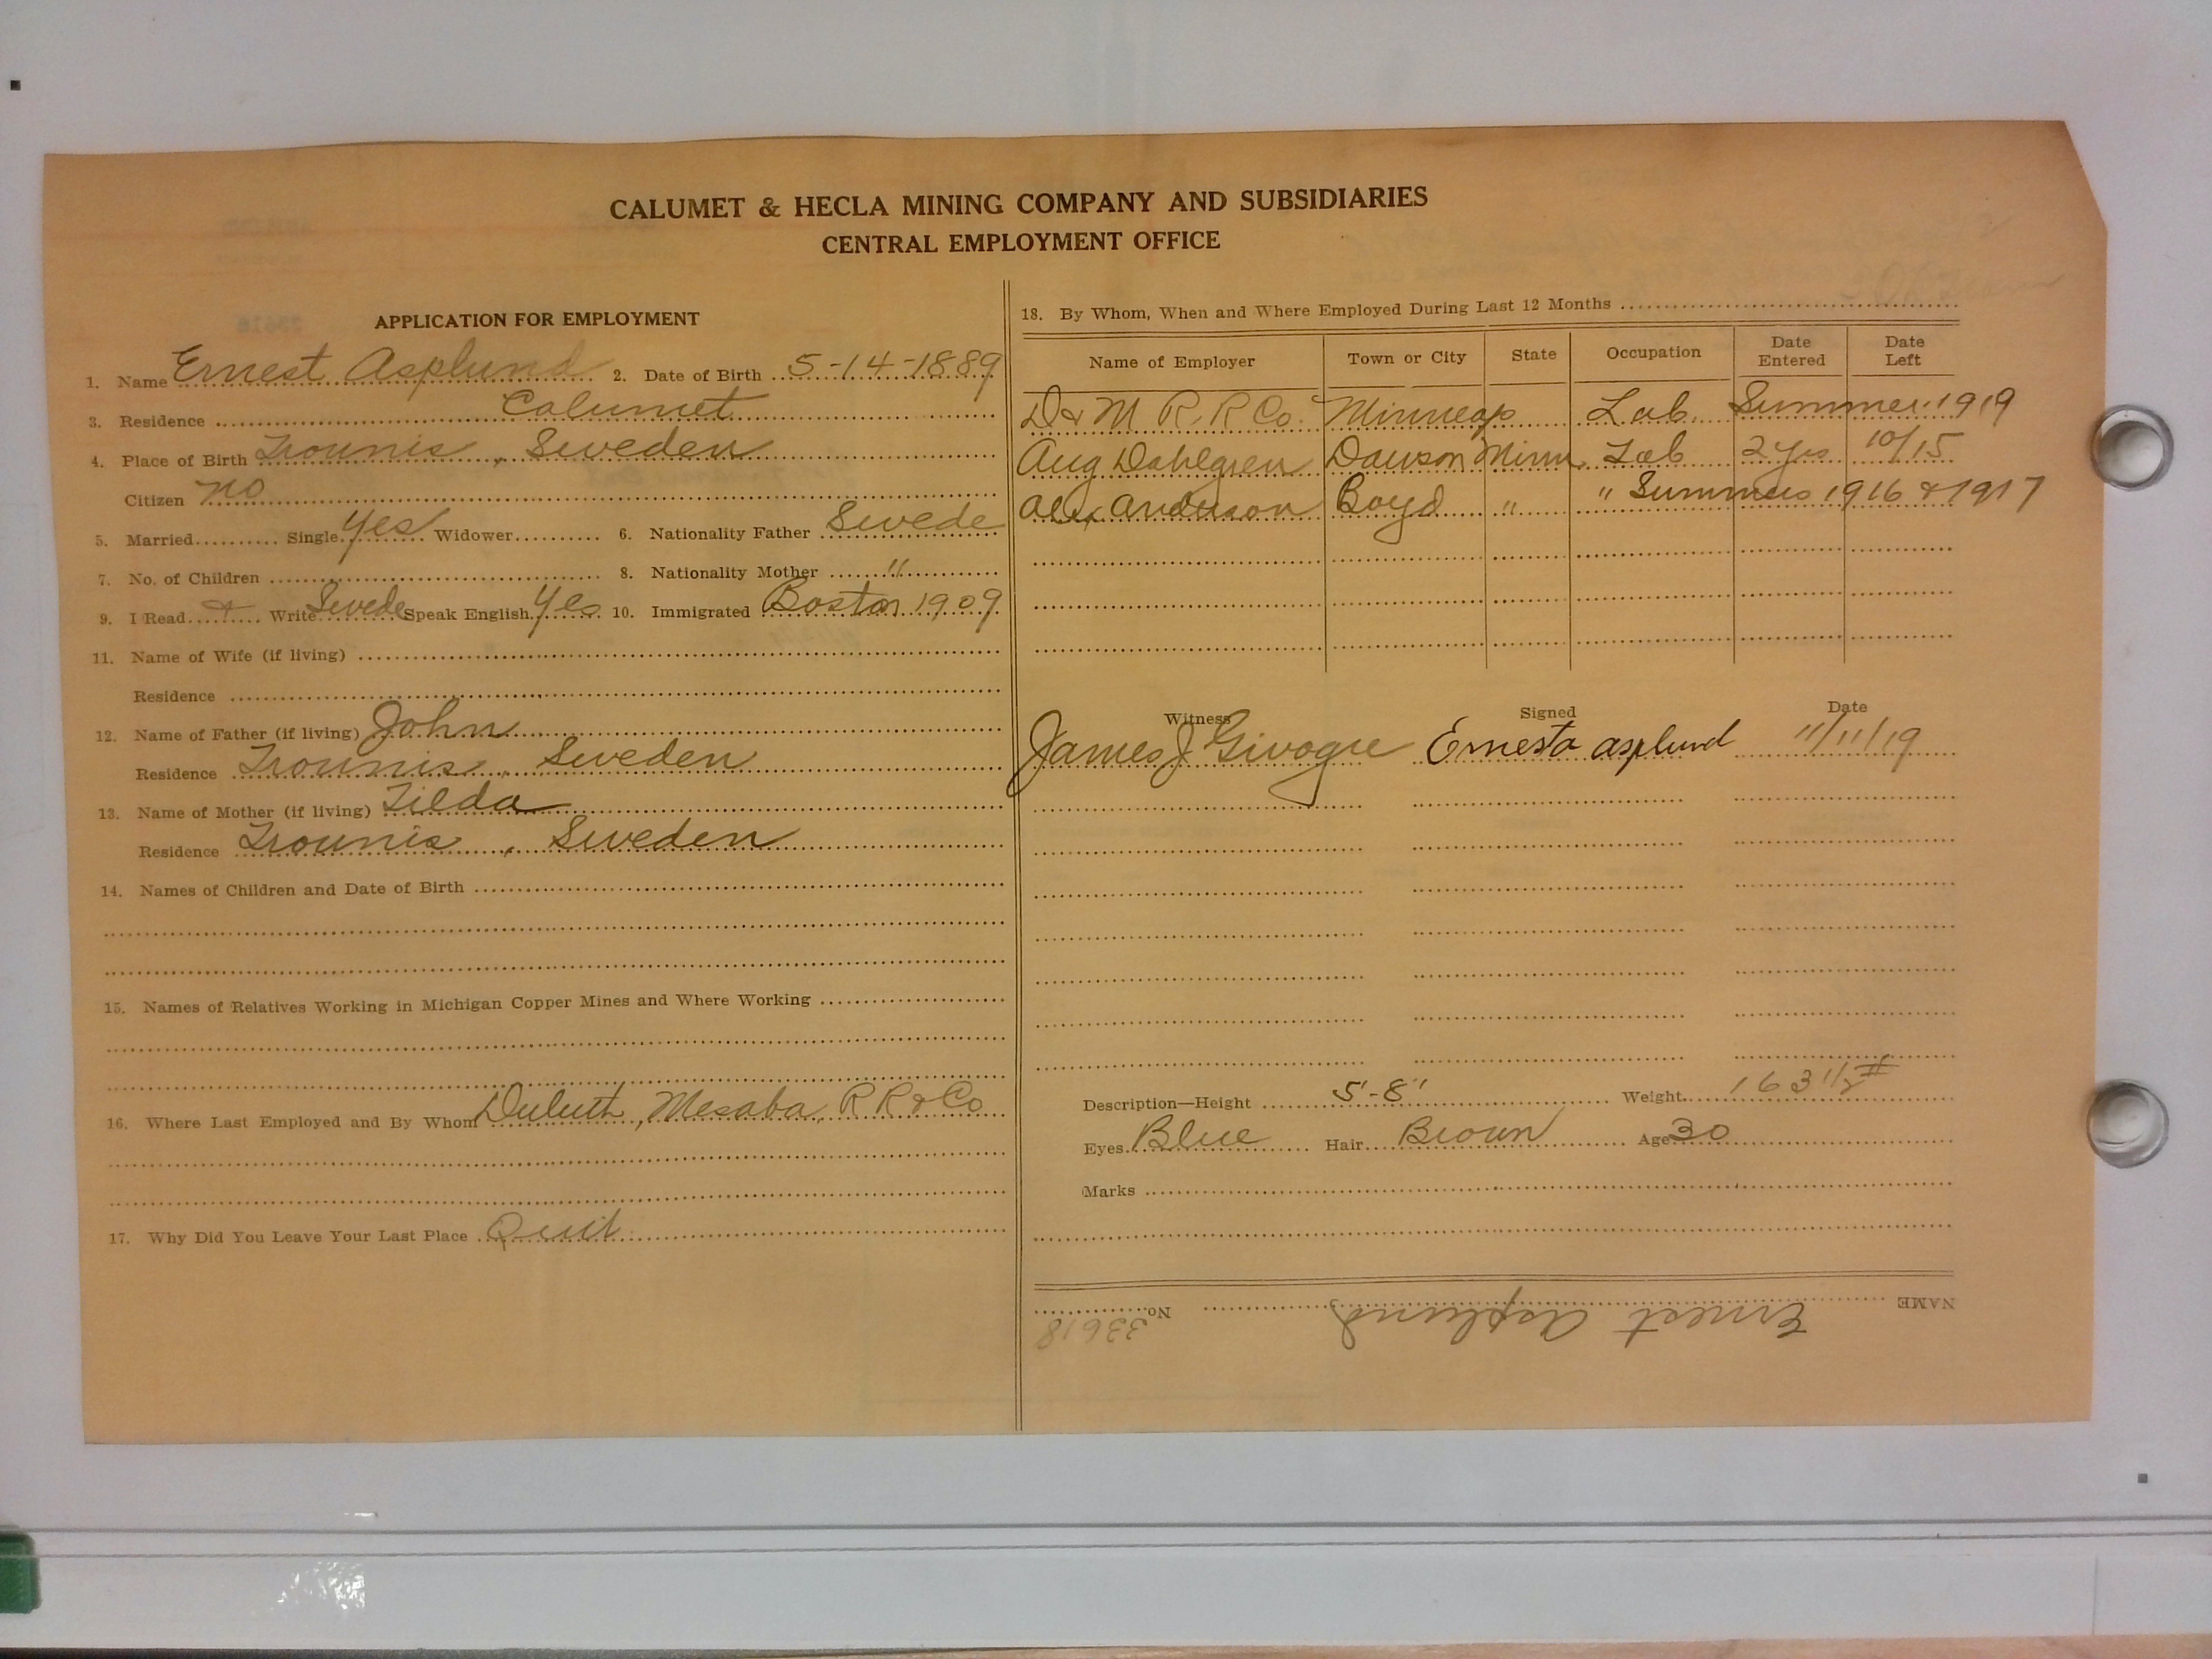 CALUMET & HECLA MINING COMPANY AND SUBSIDIARIES
CENTRAL EMPLOYMENT OFFICE
APPLICATION FOR EMPLOYMENT
1. Name Ernest Asplund 2. Date of Birth 5-14-1889
3. Residence Calumet
4. Place of Birth Trounis, Sweden
Citizen no
5. Married Single yes Widower 6. Nationality Father Swede
7. No. of Children 8. Nationality Mother "
9. I Read & Write Swede Speak English yes 10. Immigrated Boston 1909
11. Name of Wife (if living)
Residence
12. Name of Father (if living) John
Residence Trounis, Sweden
13. Name of Mother (if living) Tilda
Residence Trounis, Sweden
14. Names of Children and Date of Birth
15. Names of Relatives Working in Michigan Copper Mines and Where Working
16. Where Last Employed and By Whom Duluth, Mesaba, R R & Co
17. Why Did You Leave Your Last Place Quit
18. By Whom, When and Where Employed During Last 12 Months
Name of Employer Town or City State Occupation Date Entered Date Left
D & M R. R Co. Minneap Lab. Summer 1919
Aug Dahlgren Dawson Minn Lab 2 yrs 10/15
Alex Anderson Boyd " " Summers 1916 & 1917
Witness Signed Date
James J Ernesto asplund 11/11/19
Description—Height 5'-8" Weight 163 1/2 #
Eyes Blue Hair Brown Age 30
Marks
NAME Ernest Asplund No. 33618